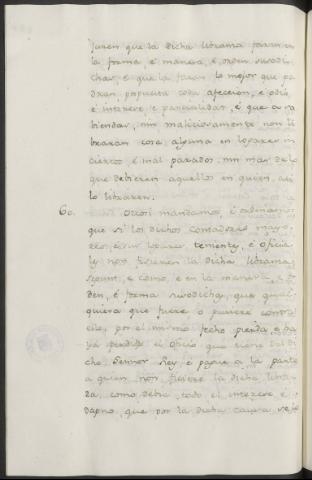 juren que la dicha librama faran en
la forma é manera, é orden susodi
chas, é que la faran lo mejor que po
dran, pospuesta toda afeccion, é odio,
é interese, é parcialidad, é que a sa
biendas, nin maliciosamente non li
braran cosa alguna en logares in
ciertos, é mal parados, nin mas de lo
que debieren aquellos en quien asi
lo libraren.
60. Otrosi mandamos, é ordenamos
que si los dichos contadores mayo
res, é sus logares tenientes, é oficia
les non ficieren la dicha librama
segunt, é como, é en la manera, é or
den, é forma susodicha, que qual
quiera que fuere o pasare contra
ello, por el mismo fecho pierda, é ha
ya perdido el oficio que tiene del di
cho Sennor Rey, é pague a la parte
a quien non ficiere la dicha libra
da, como debia, todo el interese é
dapno, que por la dicha causa